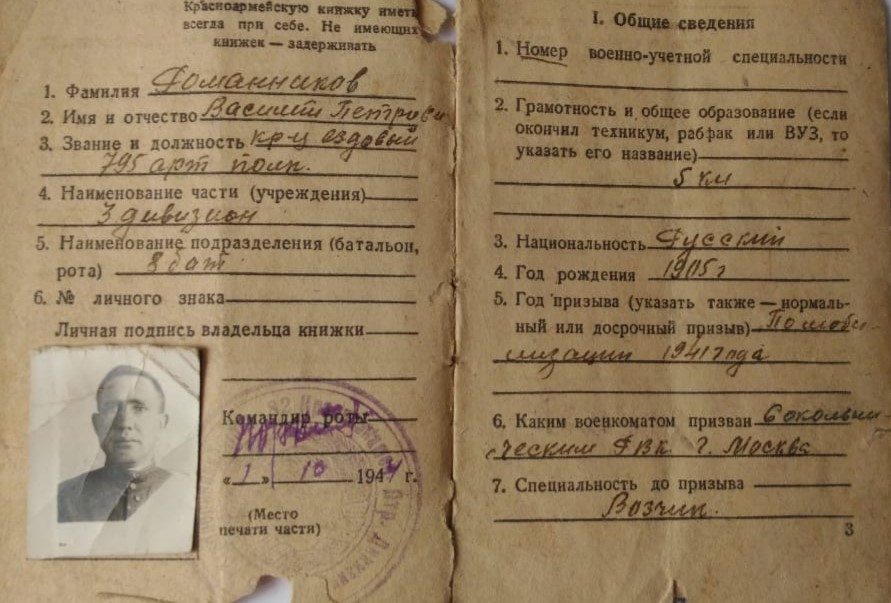 Красноармейскую книжку иметь
всегда при себе. Не имеющих
книжек — задерживать
1. Фамилия Романников
2. Имя и отчество Василий Петрови
3. Звание и должность кр-ц ездовый
795 арт полк.
4. Наименование части (учреждения)
3 дивизион
5. Наименование подразделения (батальон,
рота) 8 бат.
6. № личного знака
Личная подпись владельца книжки
Командир роты
«1» 10 1944 г.
(Место
печати части)
I. Общие сведения
1. Номер военно-учетной специальности
2. Грамотность и общее образование (если
окончил техникум, рабфак или ВУЗ, то
указать его название)
5 кл
3. Национальность Русский
4. Год рождения 1905 г
5. Год призыва (указать также — нормаль-
ный или досрочный призыв) По моби-
лизации 1941 года
6. Каким военкоматом призван Сокольни-
ческим РВК г. Москва
7. Специальность до призыва
Возчик.
3